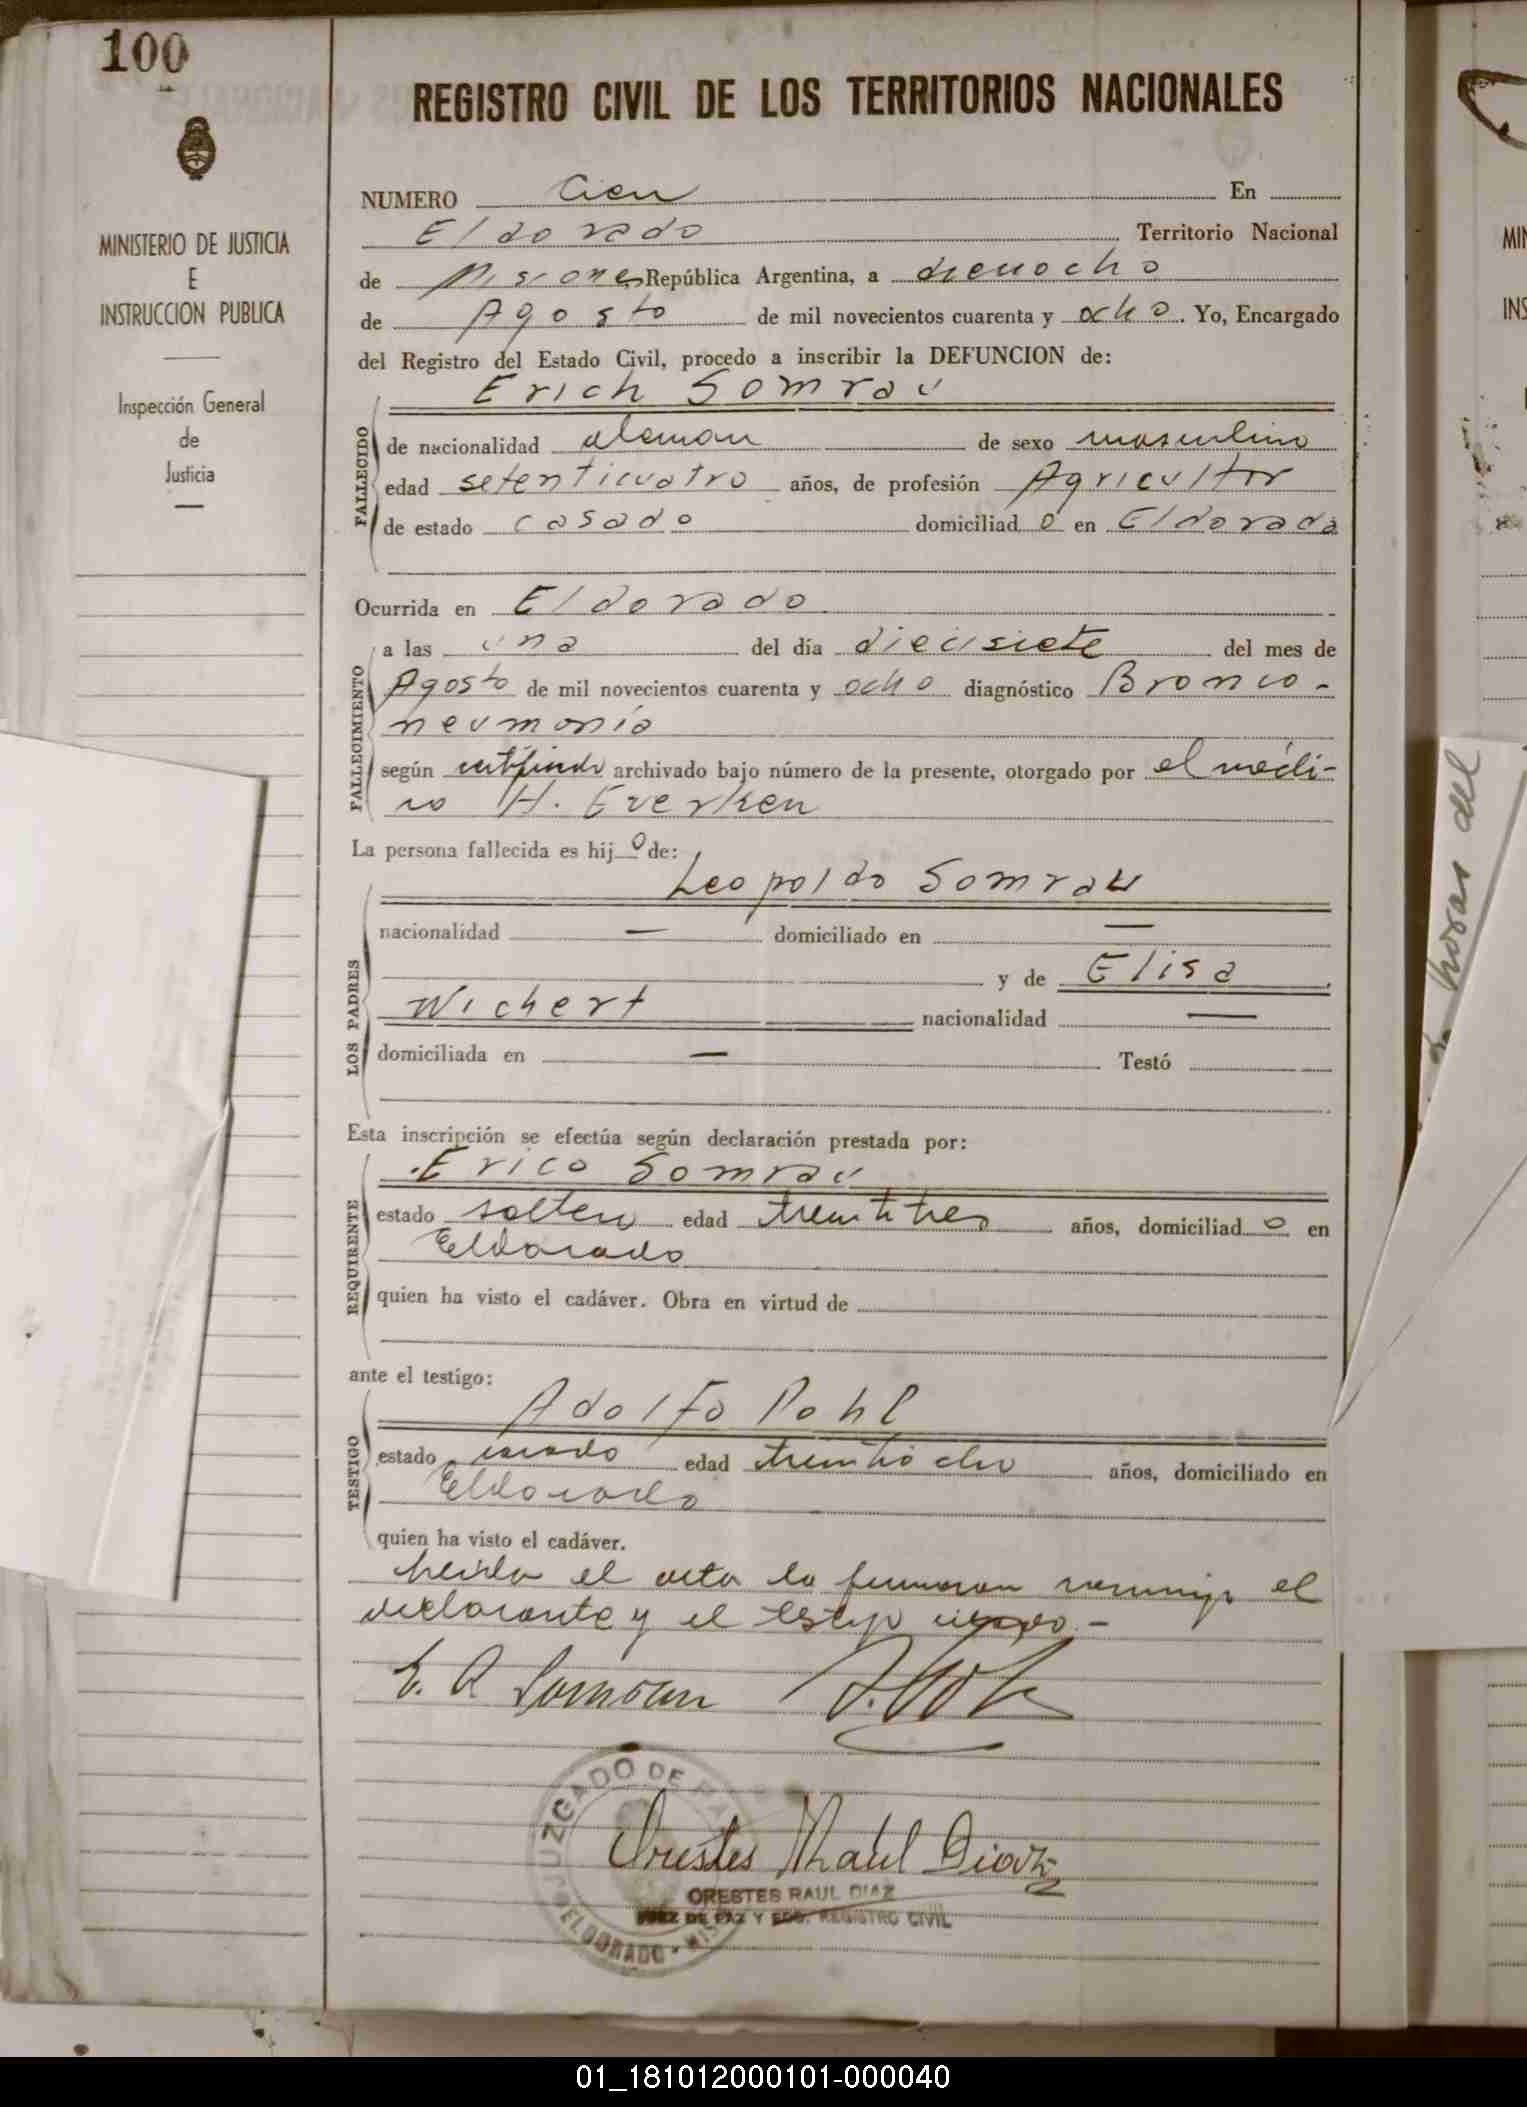 100
MINISTERIO DE JUSTICIA
E
INSTRUCCION PUBLICA
Inspección General
de
Justicia
REGISTRO CIVIL DE LOS TERRITORIOS NACIONALES
NUMERO Cien En
Eldorado Territorio Nacional
de Misiones República Argentina, a dieciocho
de Agosto de mil novecientos cuarenta y ocho. Yo, Encargado
del Registro del Estado Civil, procedo a inscribir la DEFUNCION de:
Erich Somrau
FALLECIDO
de nacionalidad aleman de sexo masculino
edad setenticuatro años, de profesión Agricultor
de estado casado domiciliad o en Eldorado
Ocurrida en Eldorado
FALLECIMIENTO
a las una del día diecisiete del mes de
Agosto de mil novecientos cuarenta y ocho diagnóstico Bronco-
neumonía
según certificado archivado bajo número de la presente, otorgado por el médi-
co H. Everken
La persona fallecida es hij o de:
LOS PADRES
Leopoldo Somrau
nacionalidad — domiciliado en —
y de Elisa
Wichert nacionalidad —
domiciliada en — Testó
Esta inscripción se efectúa según declaración prestada por:
REQUIRENTE
Erico Somrau
estado soltero edad treintitres años, domiciliad o en
Eldorado
quien ha visto el cadáver. Obra en virtud de
ante el testigo:
TESTIGO
Adolfo Pohl
estado casado edad treintiocho años, domiciliado en
Eldorado
quien ha visto el cadáver.
Leida el acta la firmaron conmigo el
declarante y el testigo
E. A. Somrau
JUZGADO DE PAZ
ELDORADO - MIS
Orestes Raúl Diaz
ORESTES RAUL DIAZ
JUEZ DE PAZ Y EDO. REGISTRO CIVIL
horas del
MIN
INS
01_181012000101-000040